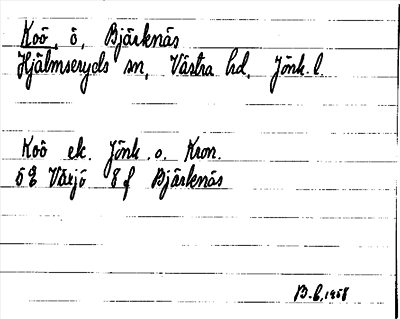 Koö, ö, Bjärknäs
Hjälmseryds sn, Västra hd, Jönk. l.
Koö ek. Jönk. o. Kron.
5E Växjö 8f Bjärknäs
B-G, 1958